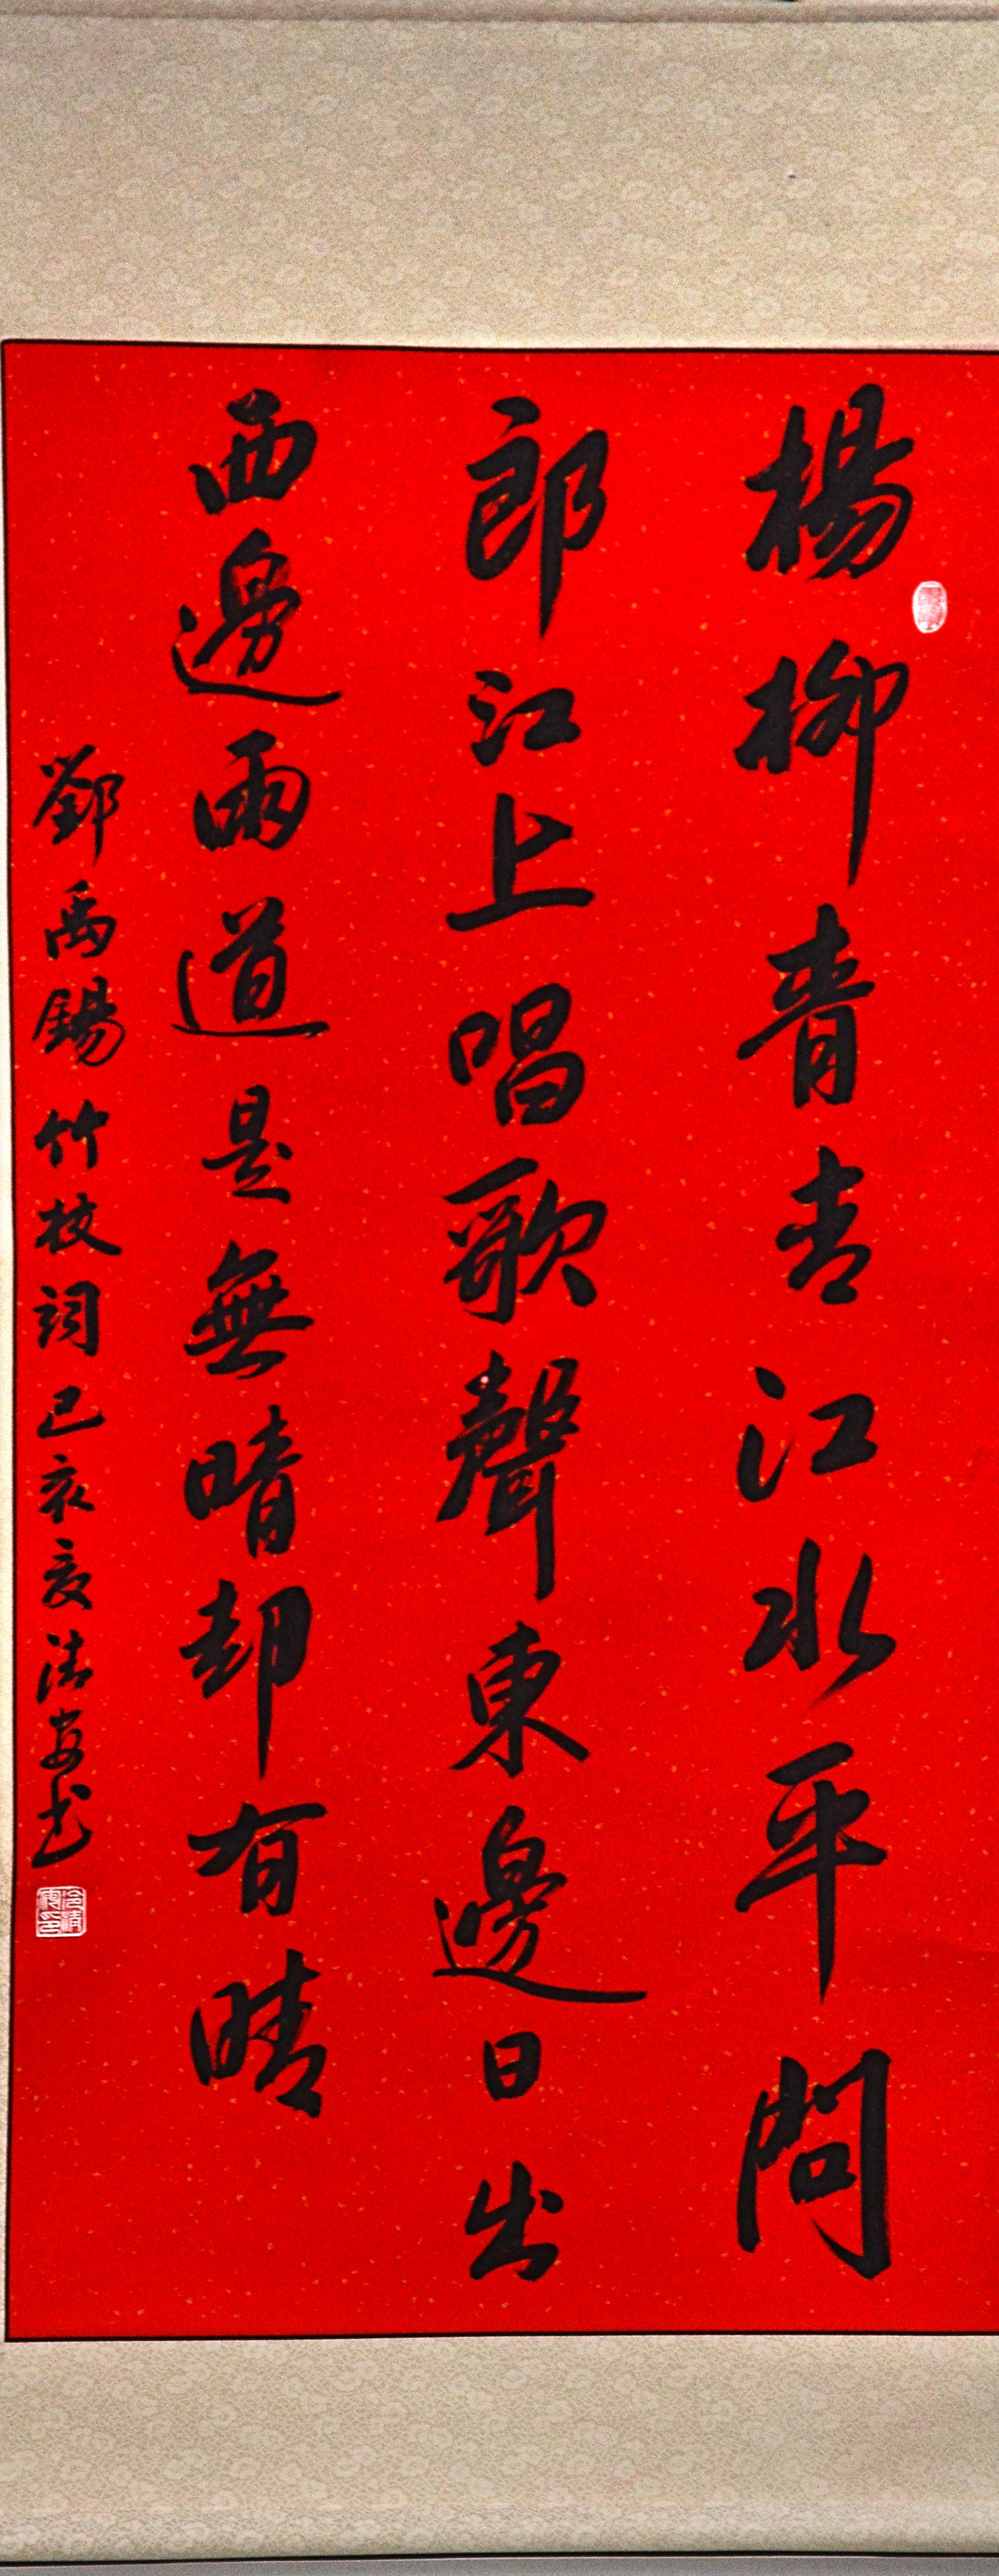 楊柳青青江水平問
郎江上唱歌聲東邊日出
西邊雨道是無晴却有晴
劉禹錫竹枝詞己亥夏清安书